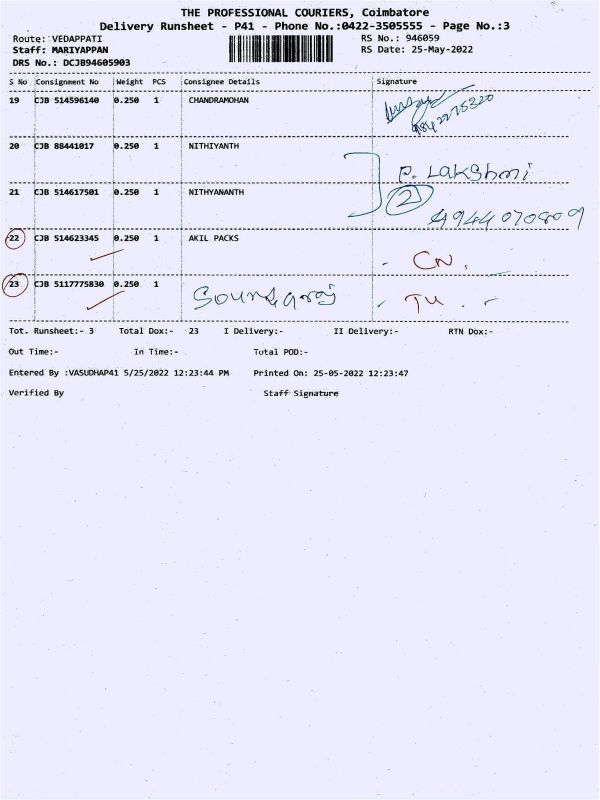 THE PROFESSIONAL COURIERS, Coimbatore
Delivery Runsheet - P41 - Phone No.:0422-3505555 - Page No.:3
Route: VEDAPPATI RS No.: 946059
Staff: MARIYAPPAN RS Date: 25-May-2022
DRS No.: DCJB94605903
S No Consignment No Weight PCS Consignee Details Signature
19 CJB 514596140 0.250 1 CHANDRAMOHAN
20 CJB 88441017 0.250 1 NITHIYANTH
P. Lakshmi
21 CJB 514617501 0.250 1 NITHYANANTH
2
22 CJB 514623345 0.250 1 AKIL PACKS
CN.
23 CJB 5117775830 0.250 1
TU.
Tot. Runsheet:- 3 Total Dox:- 23 I Delivery:- II Delivery:- RTN Dox:-
Out Time:- In Time:- Total POD:-
Entered By :VASUDHAP41 5/25/2022 12:23:44 PM Printed On: 25-05-2022 12:23:47
Verified By Staff Signature